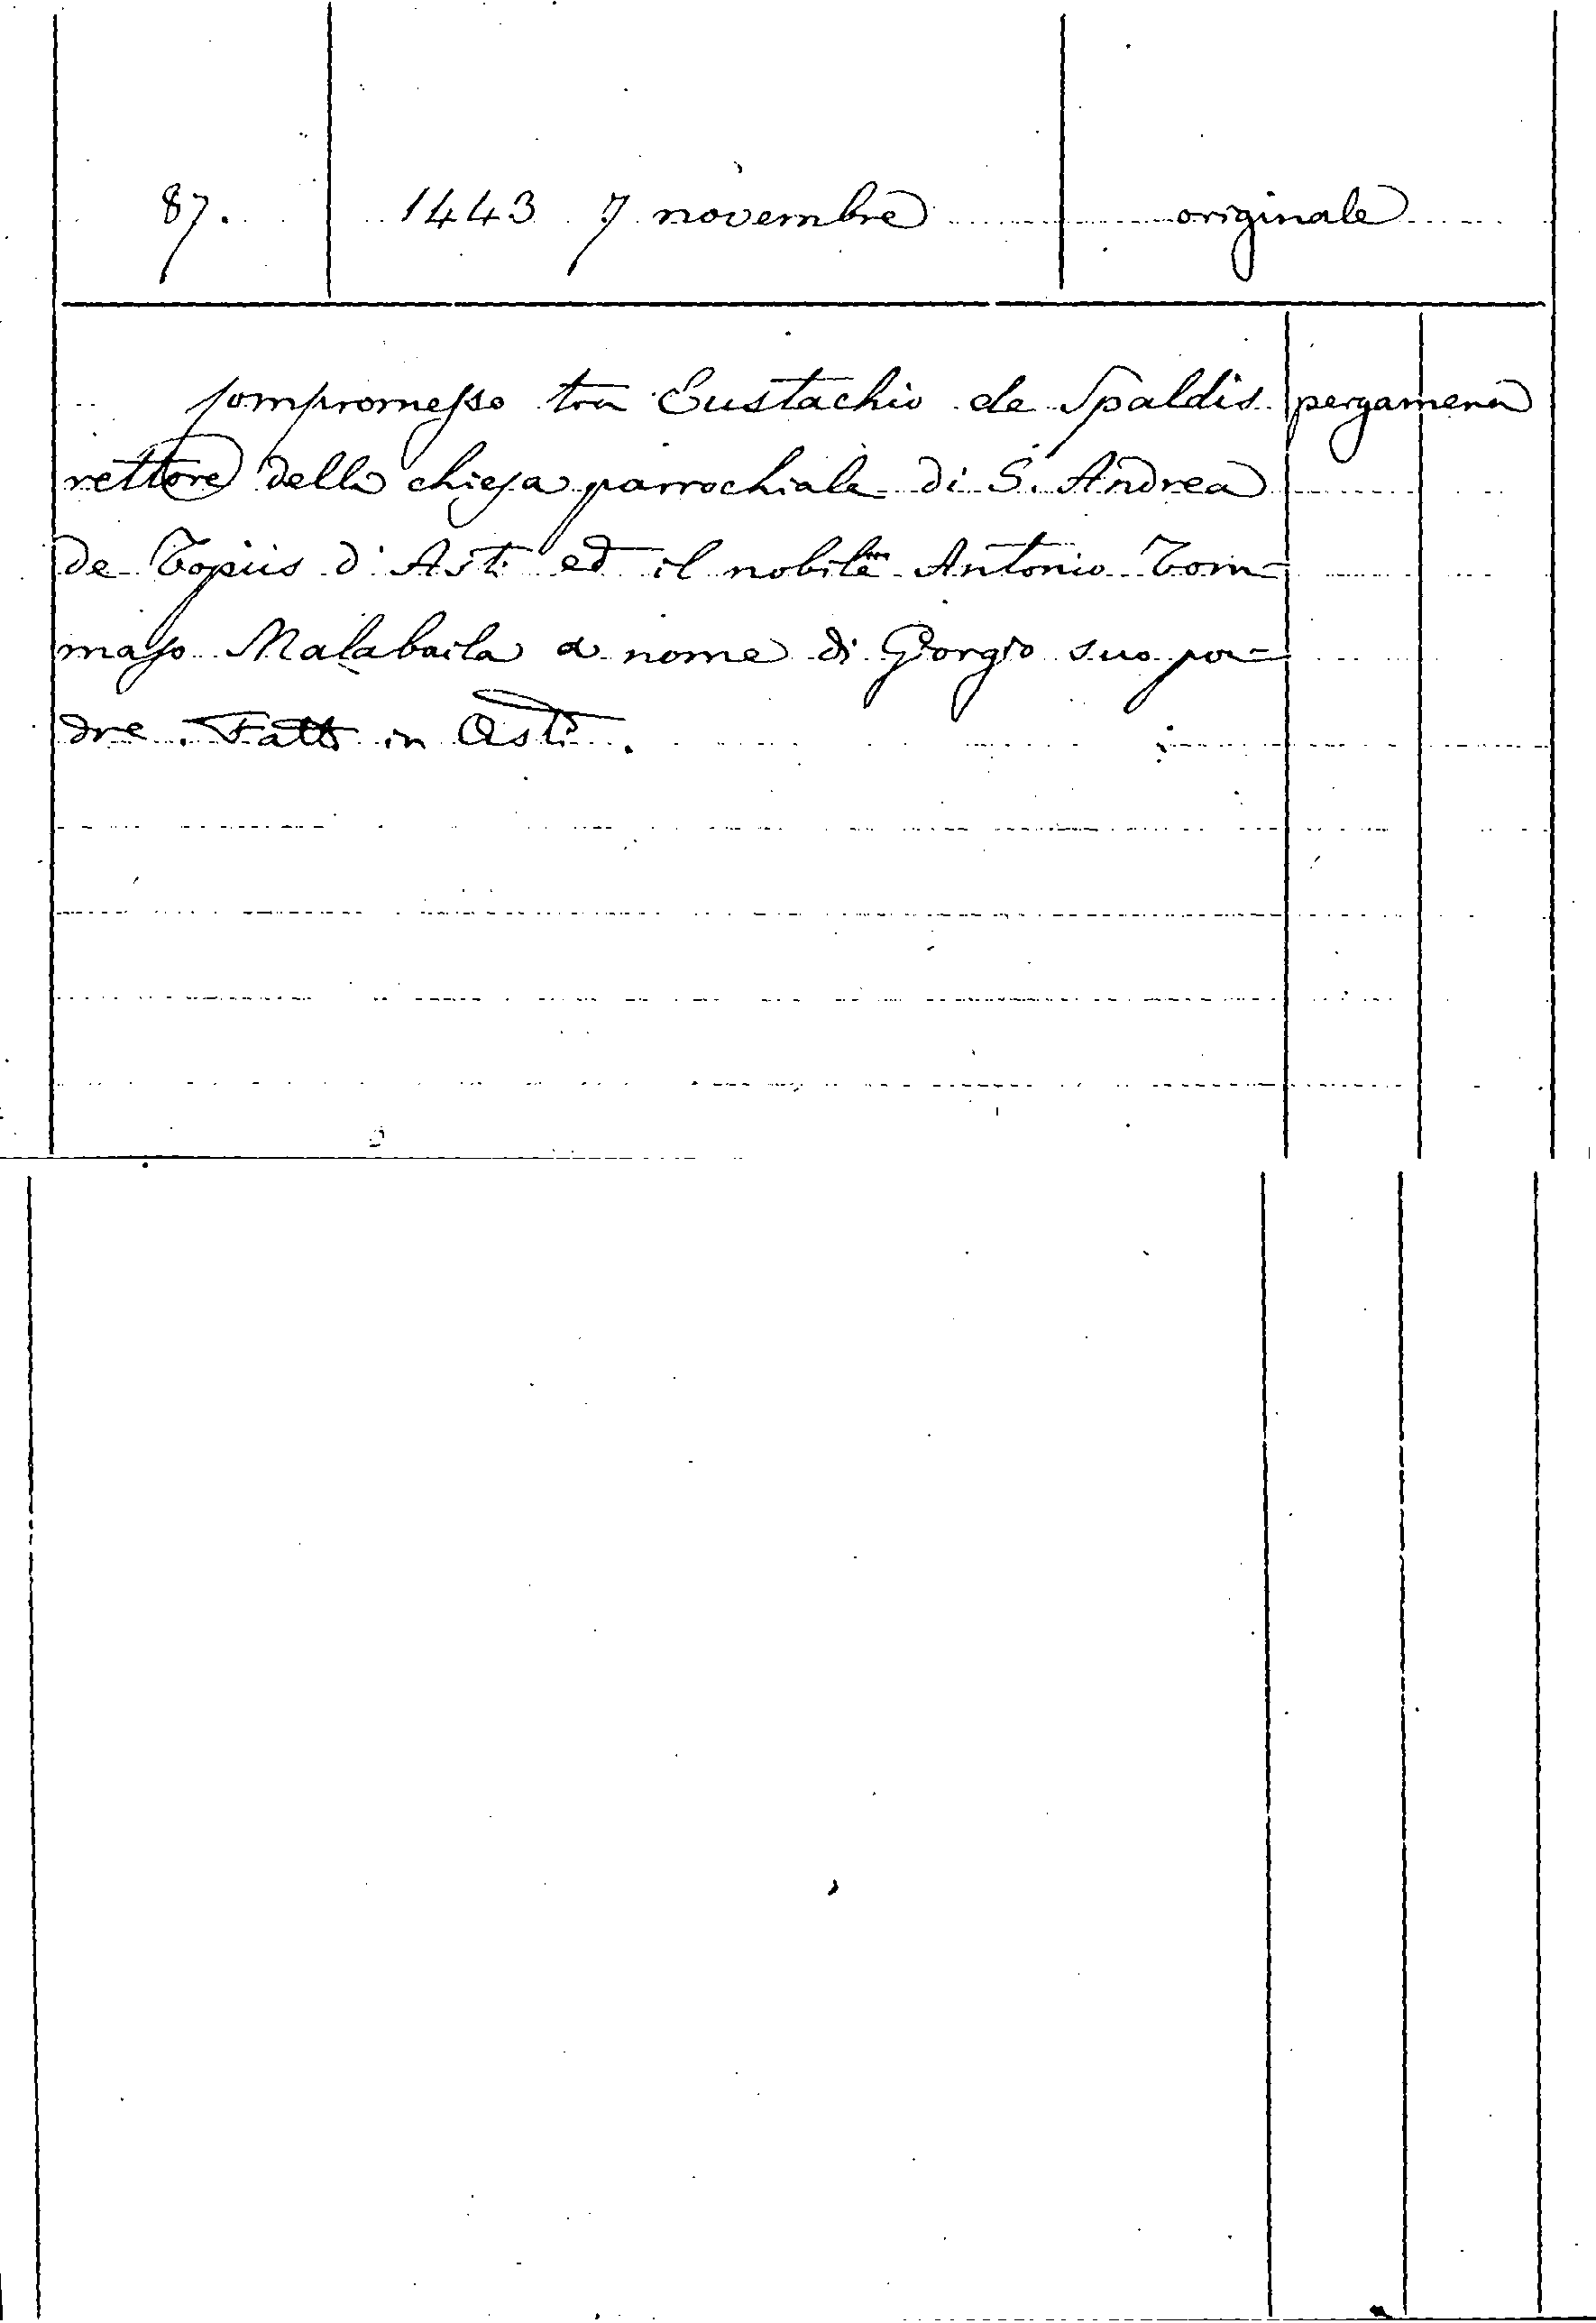 87. 1443 7 novembre originale
Compromesso tra Eustachio de Spaldis pergamena
rettore della chiesa parrochiale di S. Andrea
de Topiis d'Asti ed il nobile Antonio Tom=
maso Malabaila a nome di Giorgio suo pa=
dre. Fatto in Asti.